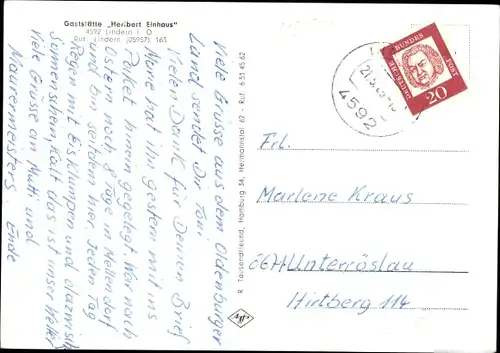 Gaststätte „Heribert Einhaus"
4592 Lindern i. O
Ruf: Lindern (05957) 163
Viele Grüsse aus dem Oldenburger
Land sendet Dir Toni
Vielen Dank für Deinen Brief
Marie hat ihn gestern mit ins
Paket hinein gegelegt. War nach
Ostern noch 8 Tage in Mellendorf
und bin seitdem hier. Jeden Tag
Regen mit Eisklumpen und dazwisch
Sonnenschein, Kalt das ist unser Wetter
Viele Grüsse an Mutti und
Maurermeisters Ende
R. Tausendfreund, Hamburg 34, Hermannstal 62 - Ruf: 6 51 45 62
Agfa
4592
DEUTSCHE BUNDESPOST
20
Frl.
Marlene Kraus
8671 Unterröslau
Hirtberg 114